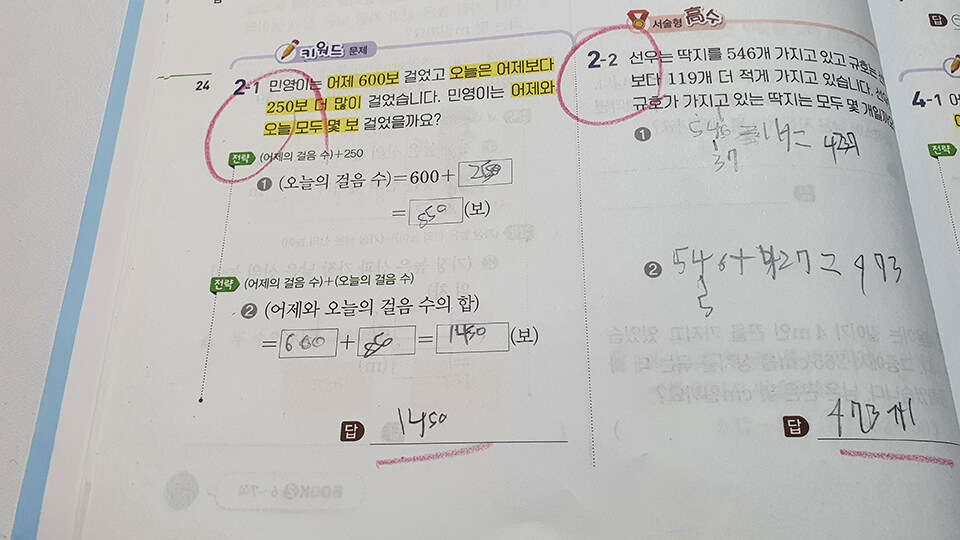 키워드 문제
24
2-1 민영이는 어제 600보 걸었고 오늘은 어제보다
250보 더 많이 걸었습니다. 민영이는 어제와
오늘 모두 몇 보 걸었을까요?
전략 (어제의 걸음 수)+250
1 (오늘의 걸음 수)=600+ 250
= 850 (보)
전략 (어제의 걸음 수)+(오늘의 걸음 수)
2 (어제와 오늘의 걸음 수의 합)
= 600 + 850 = 1450 (보)
답 1450
서술형 高수
2-2 선우는 딱지를 546개 가지고 있고 규호는
보다 119개 더 적게 가지고 있습니다.
규호가 가지고 있는 딱지는 모두 몇
1 546
37
2 546+427=973
답 973개
답
4-1